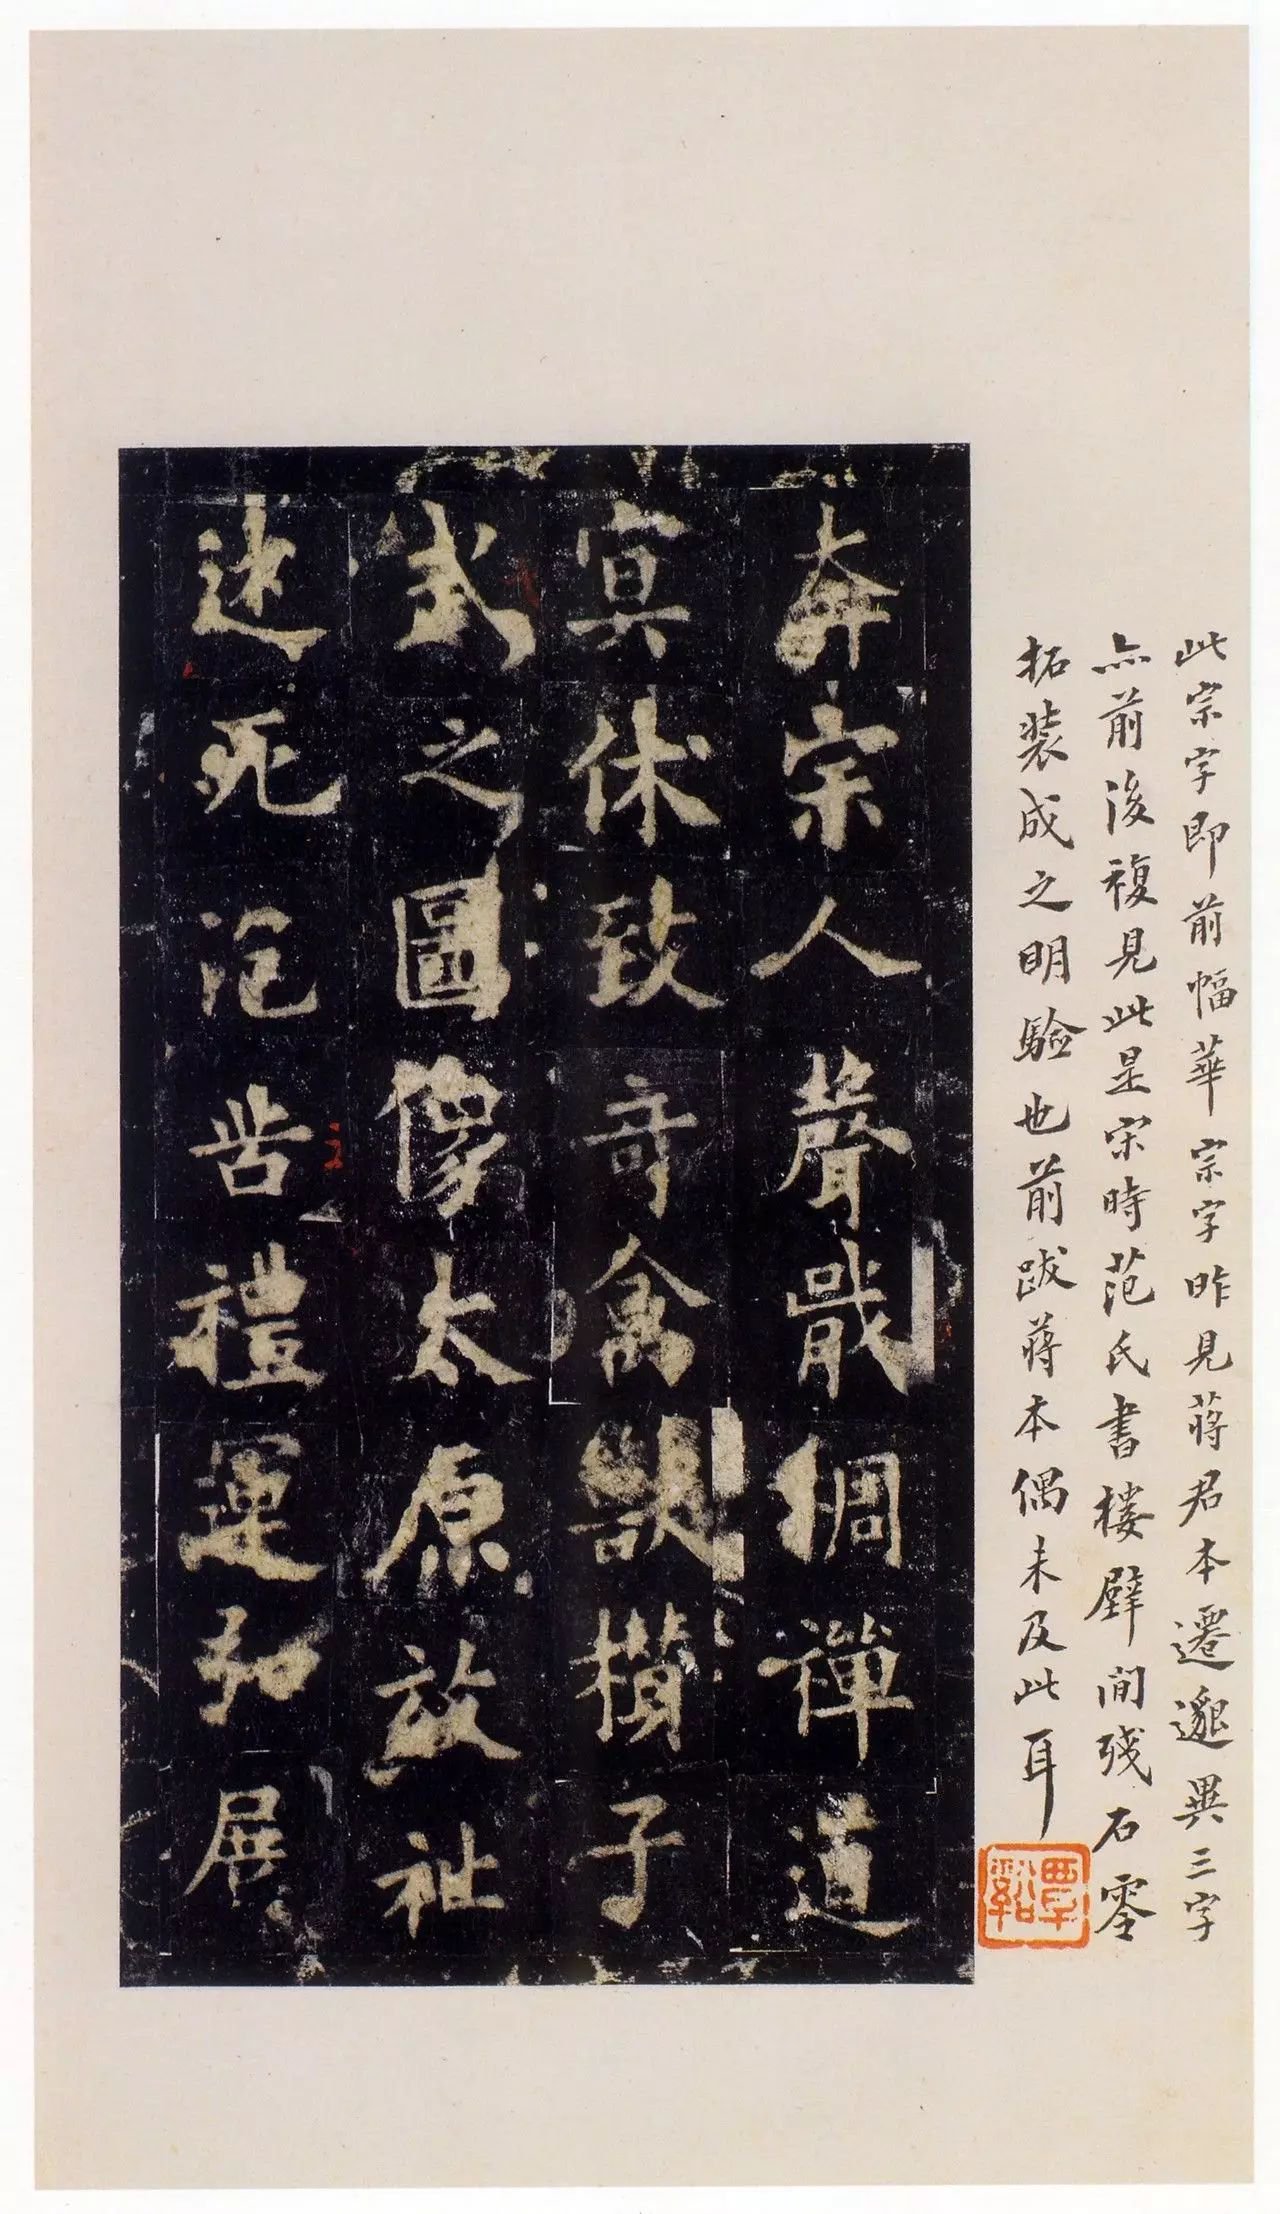 此宗字即前幅華宗字昨見蔣君本遷邈異三字
亦前後複見此是宋時范氏書樓壁間殘石零
拓裝成之明驗也前跋蔣本偶未及此耳
覃谿
奔宗人聲戢綢禪道
寘休致奇禽獸攢子
式之圖像太原放祉
迷死范喾禮運弘展